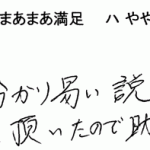 まあまあ満足 ハ やや
分かり易い 説
頂いたので 助